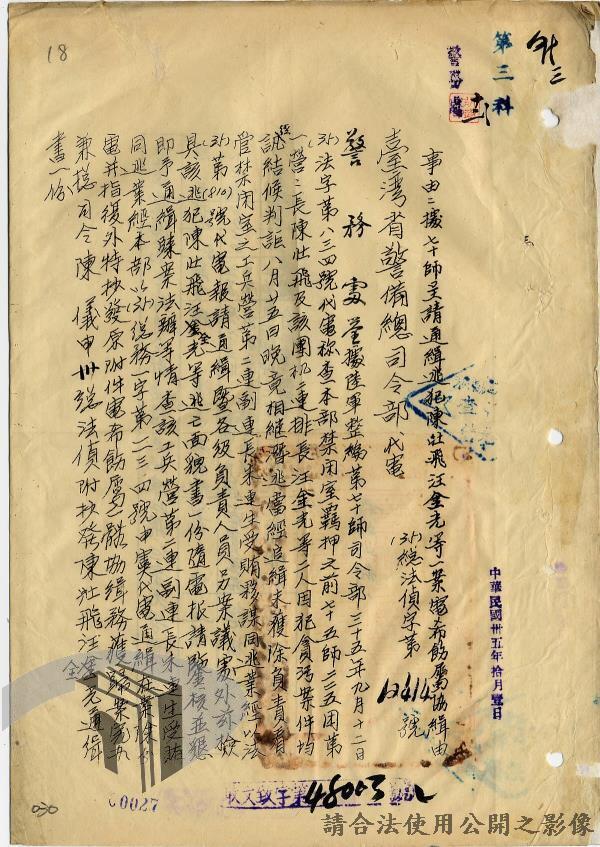 18
第三科
警務處
事由：據七十師呈請通緝逃犯陳壯飛汪金光等一案電希飭屬協緝由
臺灣省警備總司令部代電
(35)總法偵字第12414號
中華民國卅五年拾月壹日
警務處鑒據陸軍整編第七十師司令部三十五年九月十二日
(35)法字第八三四號代電称查本部禁闭室羈押之前七十五師二二五团第
一營二長陳壯飛及該團机二連排長汪金光等二人因犯貪污案件均
訊結候判詎八月廿五日晚竟相継潛逃當經追緝未獲除負責看
管禁闭室之工兵營第二連副連長朱連生受賄夥謀同逃業經以法
(35)第(810)號代電報請通緝暨各級負責人員另案議處外茲檢
具該逃犯陳壯飛汪金光等逃亡面貌書一份隨電报請鑒核並懇
即予通緝歸案法辦等情查該工兵營第二連副連長朱連生受賄
同逃業經本部以(35)總務一字第一二三四號申寒代電通緝在案除
電并指復外特抄發原附件電希飭屬一體協緝務獲歸案究办
兼總司令陳儀申卅總法偵附抄發陳壯飛汪金光通緝
書一份
全
00027
收文致字第48003號
030
請合法使用公開之影像